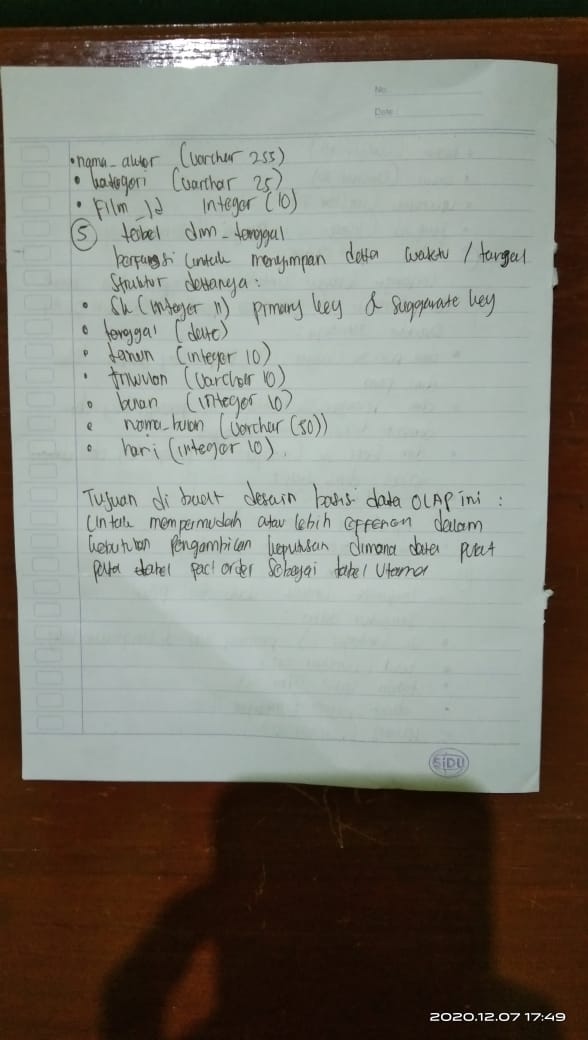 No.
Date:
• nama_aktor (Varchar 255)
• kategori (Varchar 25)
• Film_Id Integer (10)
5 tabel dim_tanggal
berfungsi untuk menyimpan data waktu / tanggal
Struktur datanya:
• Sk (Integer 11) primary key & Suggurate key
• tanggal (date)
• tahun (integer 10)
• triwulan (Varchar 10)
• bulan (integer 10)
• nama_bulan (Varchar (50))
• hari (integer 10).
Tujuan di buat desain basis data OLAP ini :
Untuk mempermudah atau lebih dalam
kebutuhan Pengambilan keputusan dimana data pusat
pada tabel fact order Sebagai tabel Utama
SiDU
2020.12.07 17:49